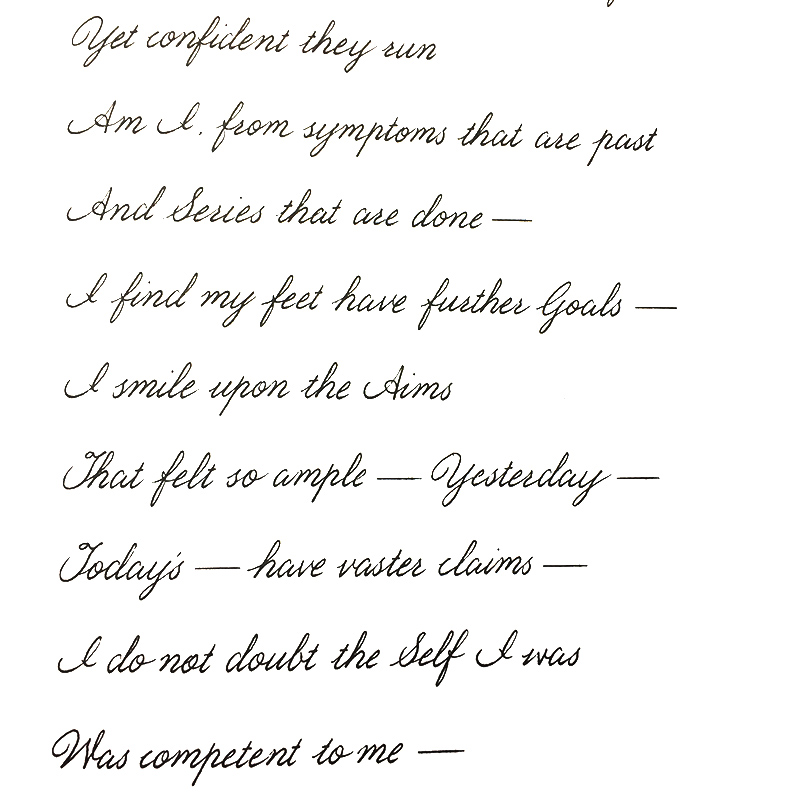 Yet confident they run
Am I. from symptoms that are past
And Series that are done —
I find my feet have further Goals —
I smile upon the Aims
That felt so ample — Yesterday —
Today's — have vaster claims —
I do not doubt the Self I was
Was competent to me —